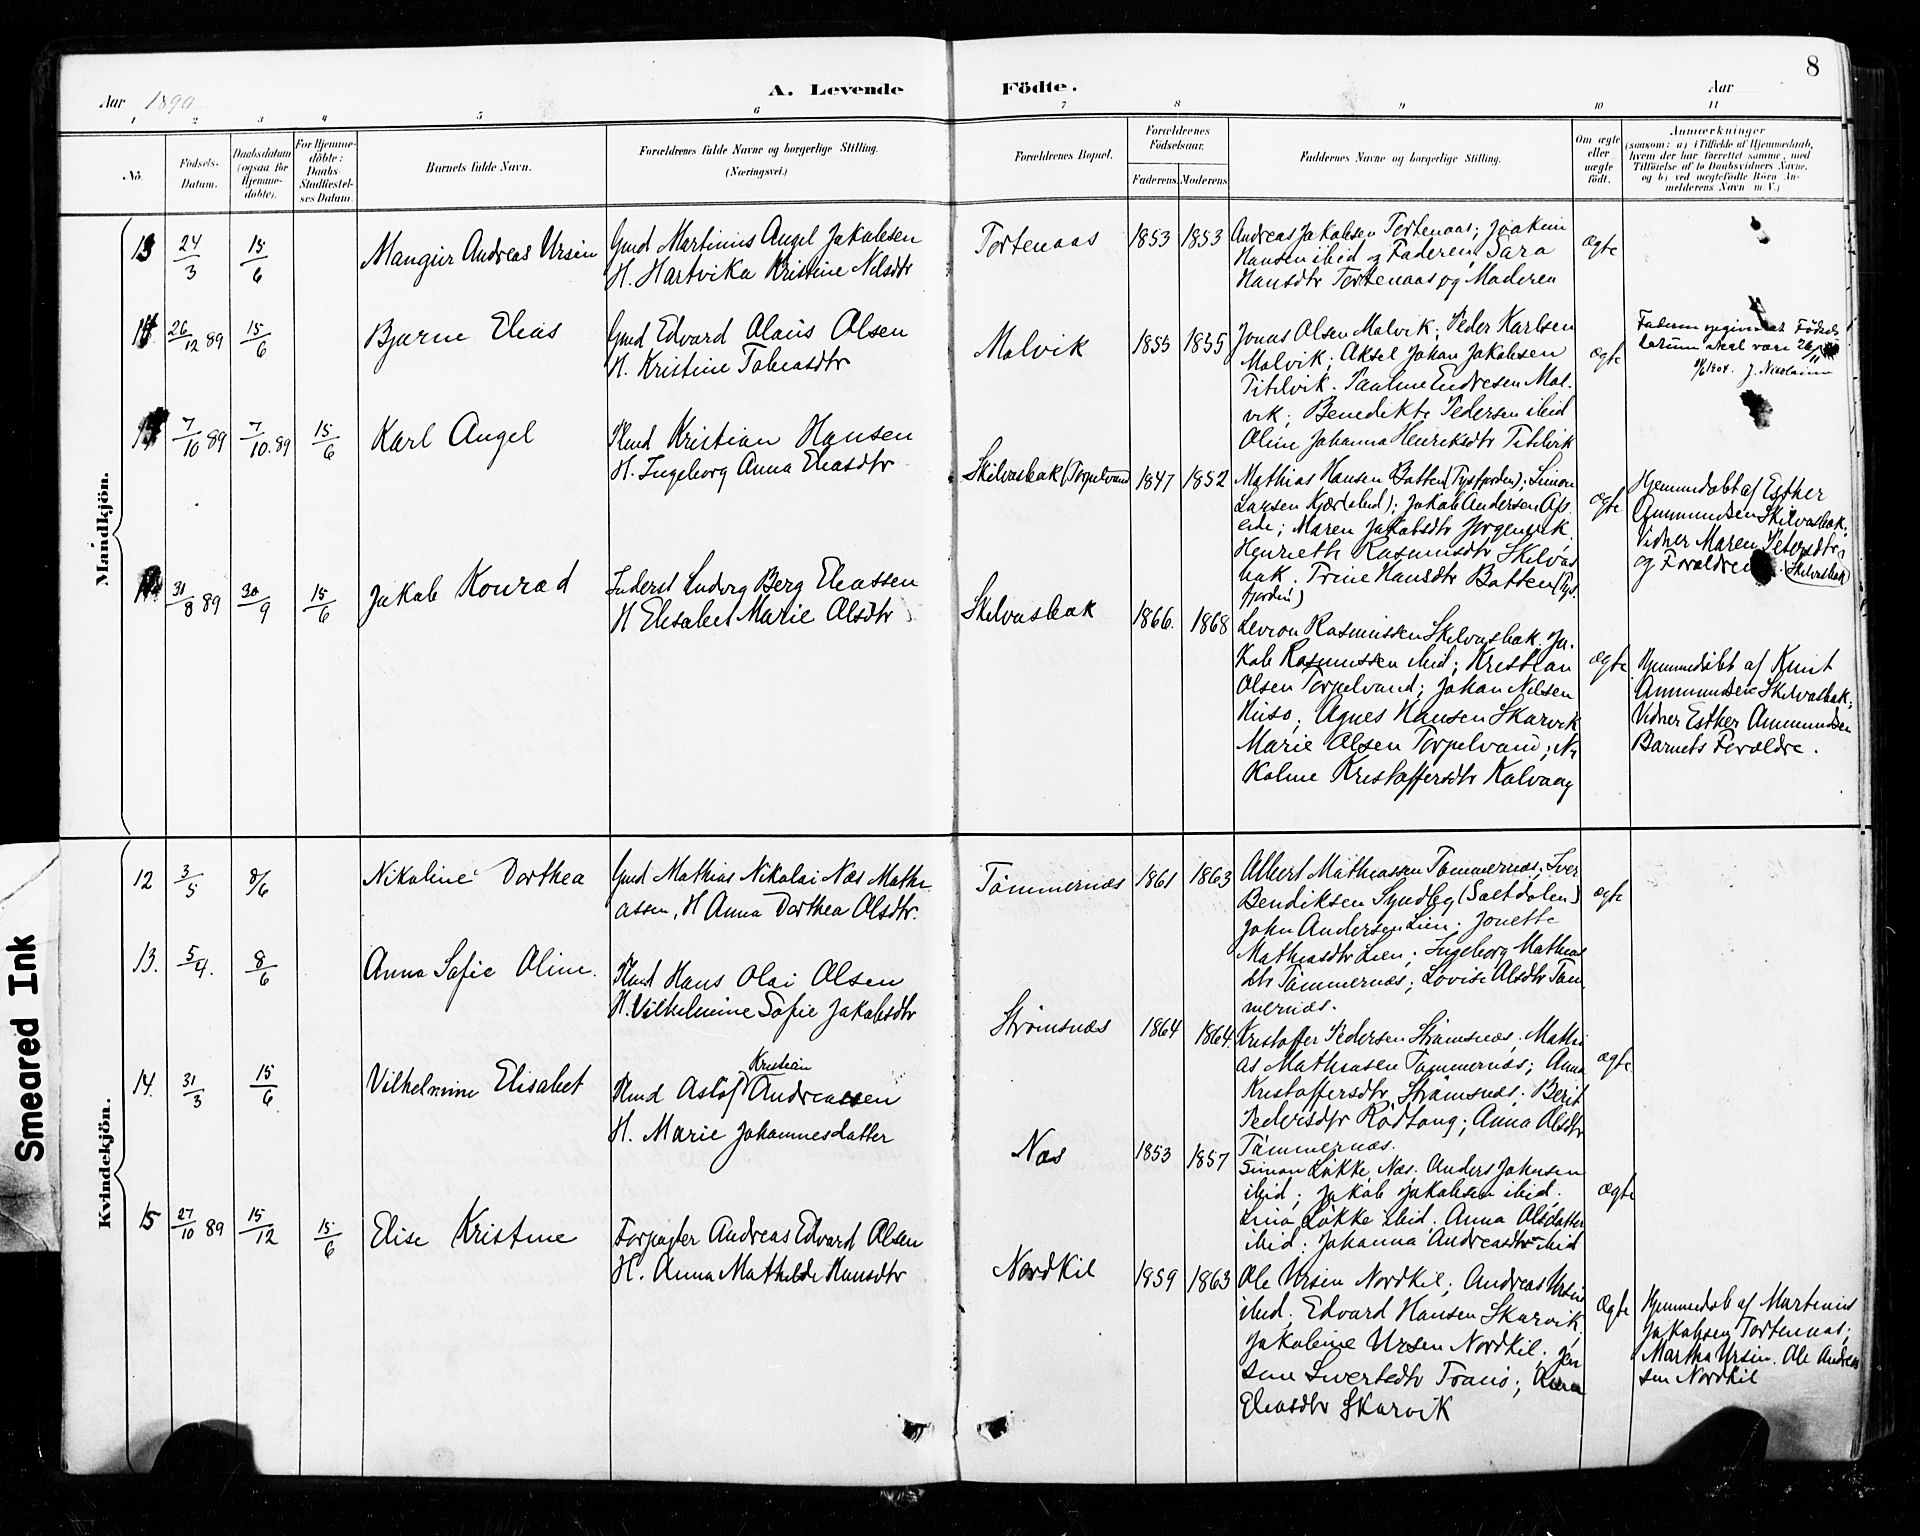 8
Aar 1890
A. Levende Födte.
Aar
1 2 3 4 5 6 7 8 9 10 11
No.
Födsels-Datum.
Daabsdatum (ogsaa for Hjemme-döbte).
For Hjemme-döbte: Daabs-Stadfæstel-ses Datum.
Barnets fulde Navn.
Forældrenes fulde Navne og borgerlige Stilling.
(Næringsvei.)
Forældrenes Bopæl.
Forældrenes Födselsaar.
Faderens. Moderens.
Faddernes Navne og borgerlige Stilling.
Om ægte eller uægte födt.
Anmærkninger
(saasom: a) i Tilfælde af Hjemmedaab,
hvem der har forrettet samme, med
Tilföielse af to Daabsvidners Navne.
og b) ved uægtefödte Börn An-
melderens Navn m. V.)
Mandkjön.
13 24/3 15/6 Mangur Andreas Ursin
Gmd Martinius Angel Jakobsen
H. Hartvika Kristine Nilsdtr
Tortenaas 1853 1853
Andreas Jakobsen Tortenaas; Joakim
Hansen ibid og Faderen, Sara
Hansdtr Tortenaas og Moderen
ægte
14 26/12 89 15/6 Bjarne Elias
Gmd Edvard Olaus Olsen
H. Kristine Tobiasdtr
Molvik 1855 1855
Jonas Olsen Molvik; Peder Karlsen
Molvik; Aksel Johan Jakobsen
Titilvik. Pauline Endresen Mol-
vik; Benedikte Pedersen ibid
Oline Johanna Henriksdtr Titilvik
ægte
Faderen opgiver at Födsels
datum skal være 26/11
1904. J. Nicolaisen
7/10 89 7/10.89 15/6 Karl Angel
Kristian Hansen
H. Ingeborg Anna Eliasdtr
Skilvasbak (Torpelvand) 1847 1852
Mathias Hansen Botten (Tysfjorden); Simon
Larsen Kjær (ibid); Jakob Andersen
Maren Jakobsdtr
Henriette Rasmusdtr Skilvas
bak. Trine Hansdtr Botten (Tys.
fjorden)
ægte
Hjemmedøbt af Esther
Ammundsen Skilvasbak;
Vidner Maren Petersdtr
og Forældrene. (Skilvasbak)
31/8 89 30/9 15/6 Jakob Konrad
Inderst Ludvig Berg Eliassen
H Elisabet Marie Olsdtr
Skilvasbak 1866. 1868
Rasmussen Skilvasbak. Ja-
kob Rasmussen ibid; Kristian
Olsen Torpelvand; Johan Nilsen
Husø; Agnes Hansen Skarvik
Marie Olsen Torpelvand; Ni
koline Kristoffersdtr Kalvaag
ægte
Hjemmedøbt af Knut
Ammundsen Skilvasbak;
Vidner Esther Ammundsen
Barnets Forældre.
Kvindekjön.
12 3/5 8/6 Nikoline Dorthea
Gmd Mathias Nikolai Næs Mathi
assen, H Anna Dorthea Olsdtr.
Tömmernæs 1861 1863
Albert Mathiassen Tömmernæs; Iver
Bendiksen (Saltdalen)
John Andersen Lien; Jonette
Mathiasdtr Lien; Ingeborg Mathias
dtr Tömmernæs; Lovise Olsdtr Töm
mernæs.
ægte
13. 5/4. 8/6 Anna Sofie Oline.
Hans Olai Olsen
H. Vilhelmine Sofie Jakobsdtr
Strømsnæs 1864 1864.
Kristoffer Pedersen Strømsnæs; Mathi
as Mathiasen Tømmernæs; Anna
Kristoffersdtr Strømsnæs; Berit
Pedersdtr Rödsang; Anna Olsdtr
Tömmernæs.
ægte
14. 31/3 15/6 Vilhelmine Elisabet
Kristian
Aslof Andreassen
H. Marie Johannesdatter
Næs 1853 1857
Simon Løkke Næs. Anders Johnsen
ibid; Jakob Jakobsen ibid.
Lina Løkke ibid. Anna Olsdatter
ibid; Johanna Andreasdtr ibid
ægte
15 27/10 89 15/12 15/6 Elise Kristine
Forpagter Andreas Edvard Olsen
H. Anna Mathilde Hansdtr
Nordkil 1859 1863
Ole Ursin Nordkil; Andreas Ursin
ibid; Edvard Hansen Skarvik
Jakobine Ursin Nordkil; Jen
sine Sivertsdtr Tranø;
Eliasdtr Skarvik
Ægte
Hjemmedøbt af Martinius
Jakobsen Tortenaas;
Martha Ursin. Ole Andrea
sen Nordkil
Smeared Ink